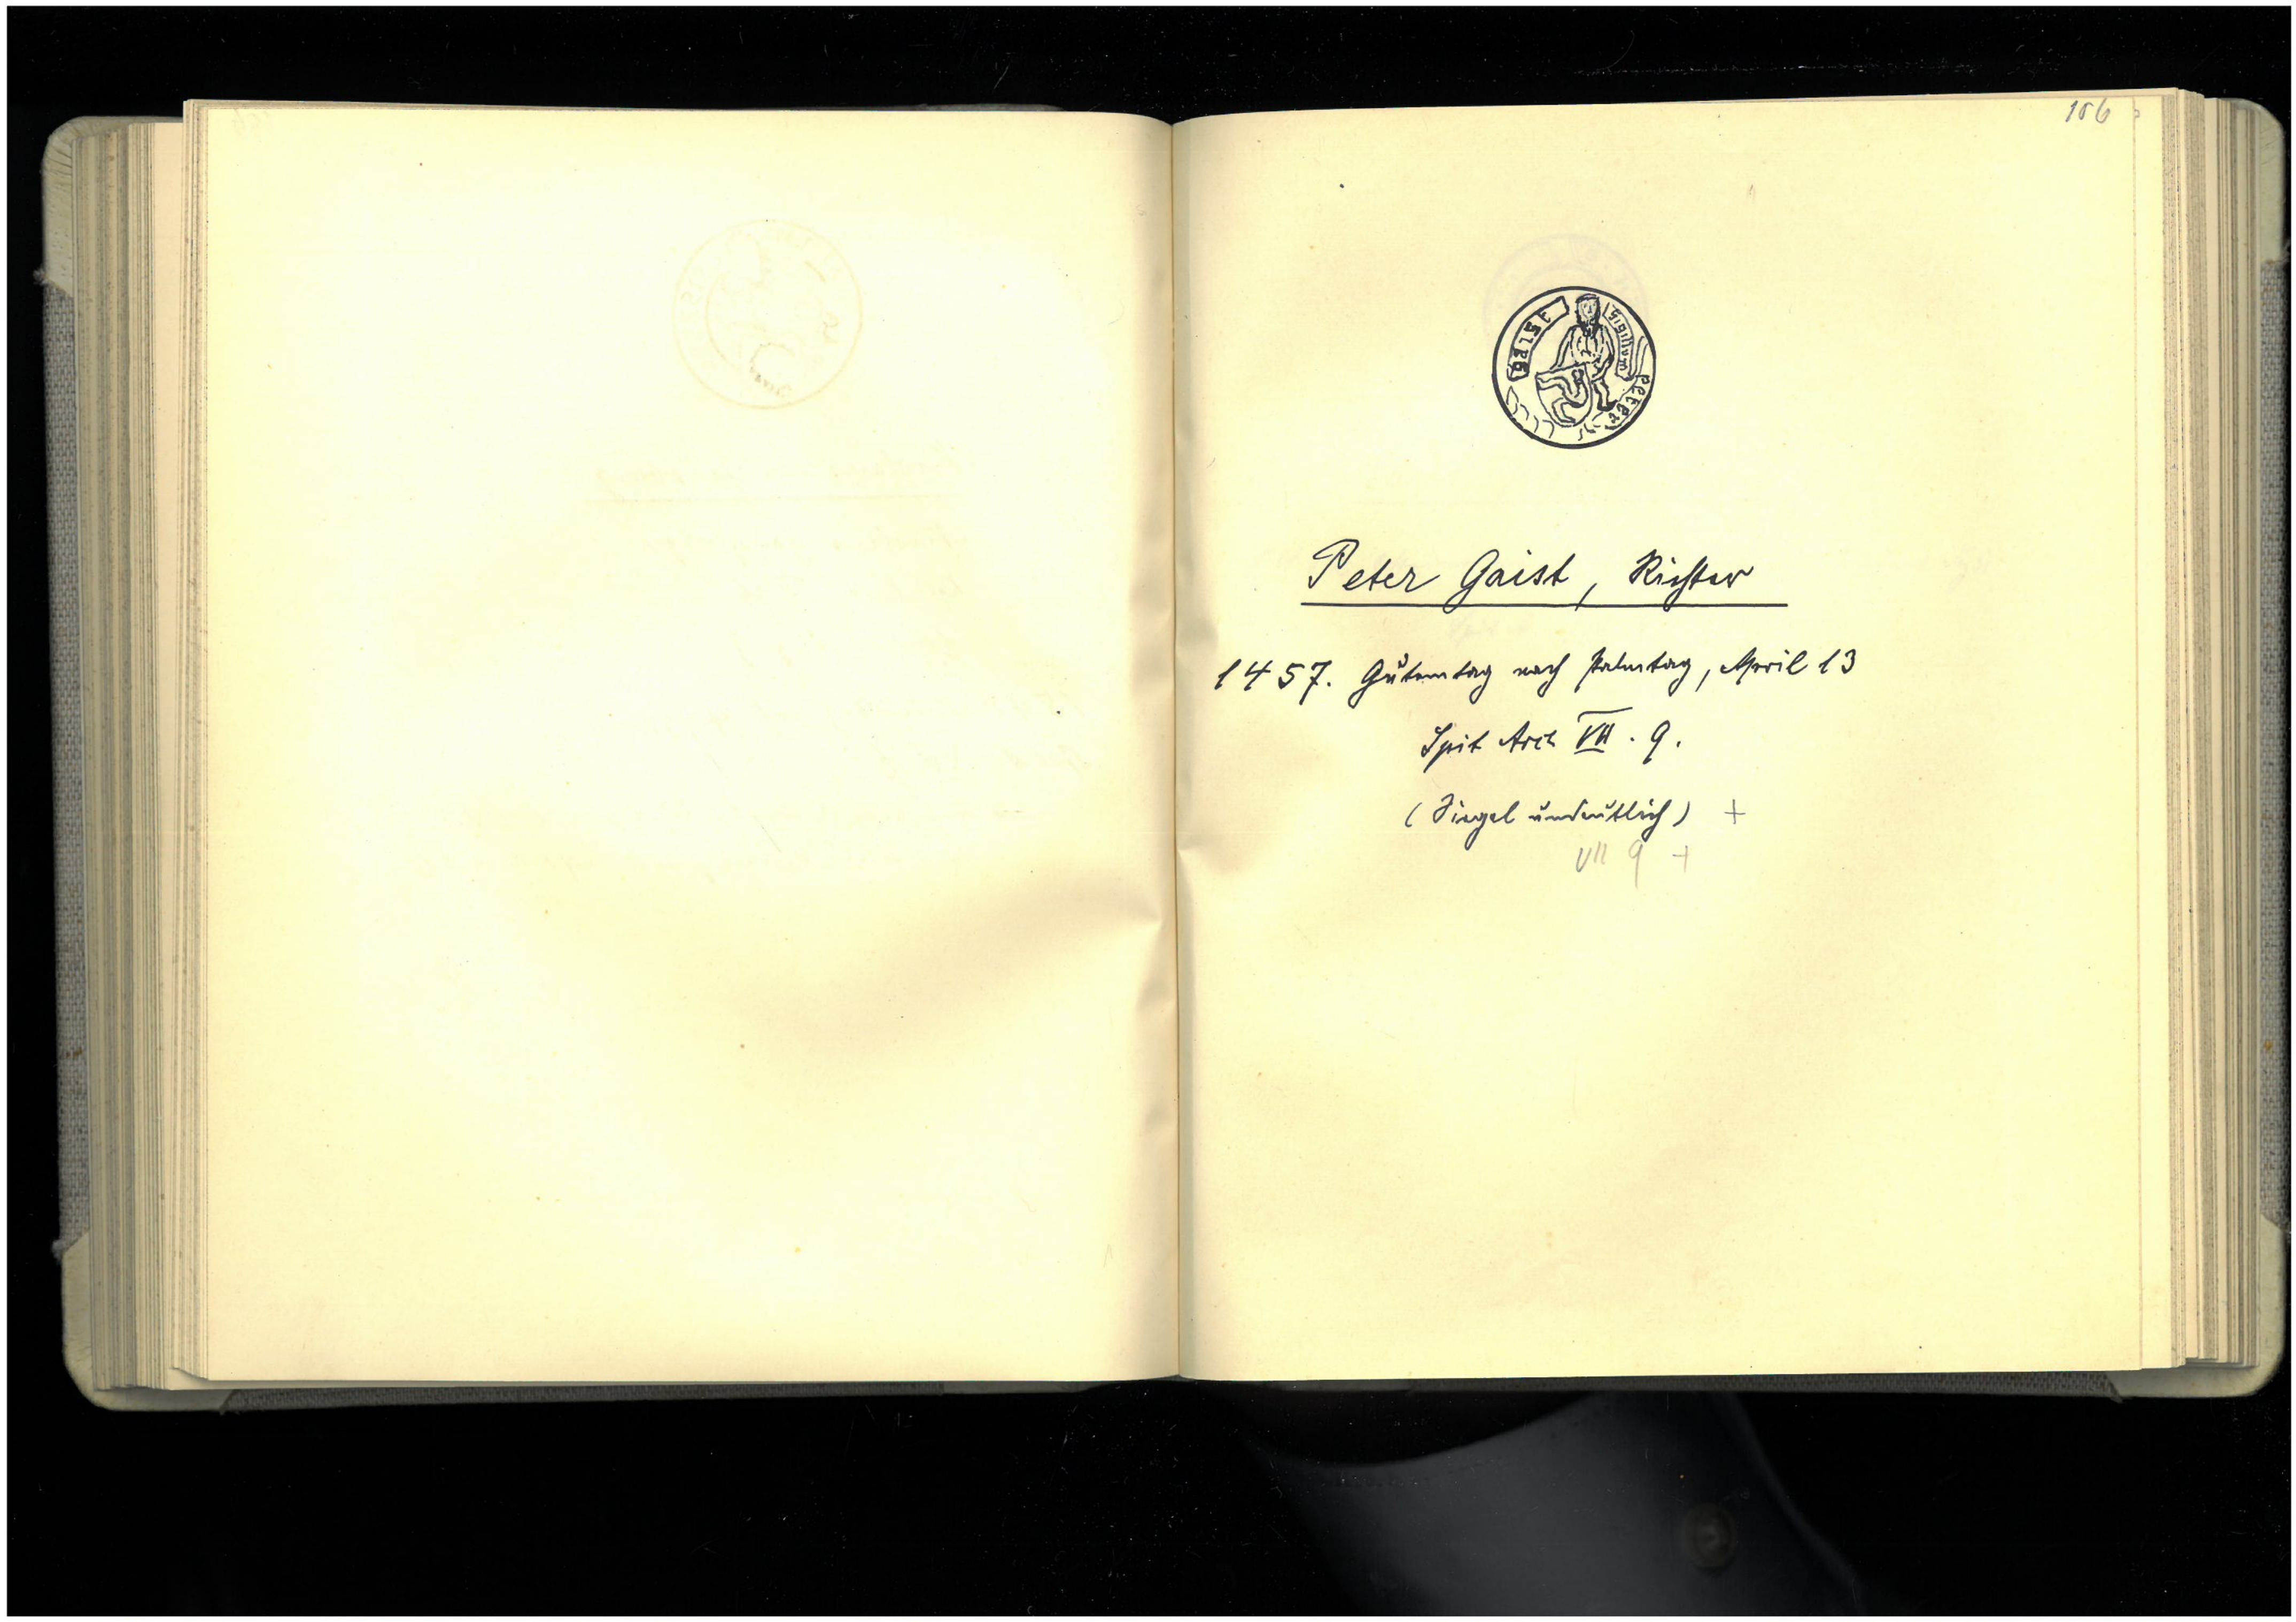 106
Sigillum peter gaist
Peter Gaist, Richter
1457. Gutemtag nach Palmtag, April 13
Spit Arch VII . 9.
(Siegel undeutlich) +
VII 9 +